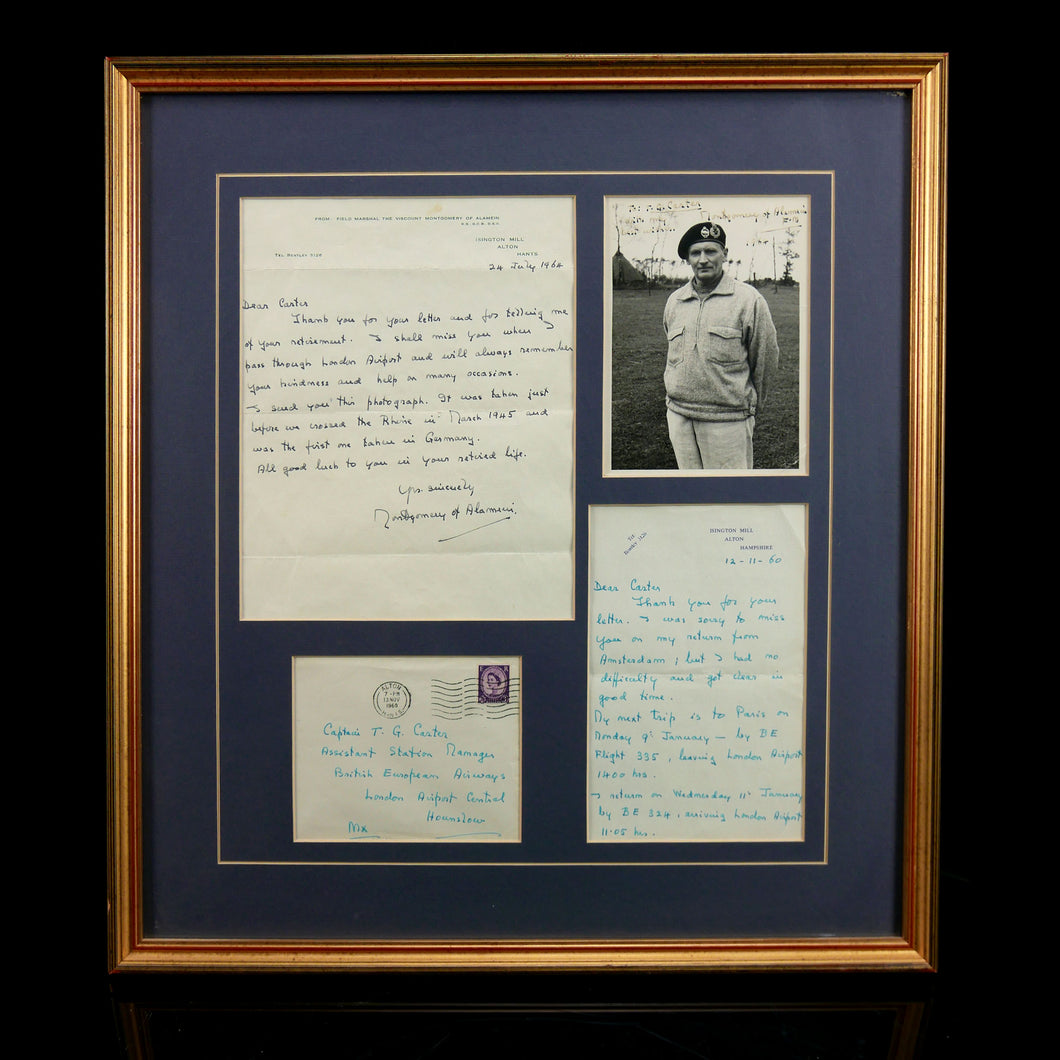 FROM: FIELD MARSHAL THE VISCOUNT MONTGOMERY OF ALAMEIN
K.G. G.C.B. D.S.O.
ISINGTON MILL
ALTON
TEL. BENTLEY 3126 HANTS.
24 July 1964
Dear Carter
Thank you for your letter and for telling me
of your retirement. I shall miss you when I
pass through London Airport and will always remember
your kindness and help on many occasions.
I send you this photograph. It was taken just
before we crossed the Rhine in March 1945 and
was the first one taken in Germany.
All good luck to you in your retired life.
Yrs. sincerely
Montgomery of Alamein.
To: T. G. Carter
with my
best wishes
Montgomery of Alamein
F.M.
ISINGTON MILL
ALTON
HAMPSHIRE
Tel
Bentley 3126
12-11-60
Dear Carter
Thank you for your
letter. I was sorry to miss
you on my return from
Amsterdam; but I had no
difficulty and got clear in
good time.
My next trip is to Paris on
Monday 9th January — by BE
Flight 335, leaving London Airport
1400 hrs.
I return on Wednesday 11th January
by BE 324, arriving London Airport
11.05 hrs.
ALTON
7-PM
13 NOV
1960
HANTS
Captain T. G. Carter
Assistant Station Manager
British European Airways
London Airport Central
Hounslow
Mx